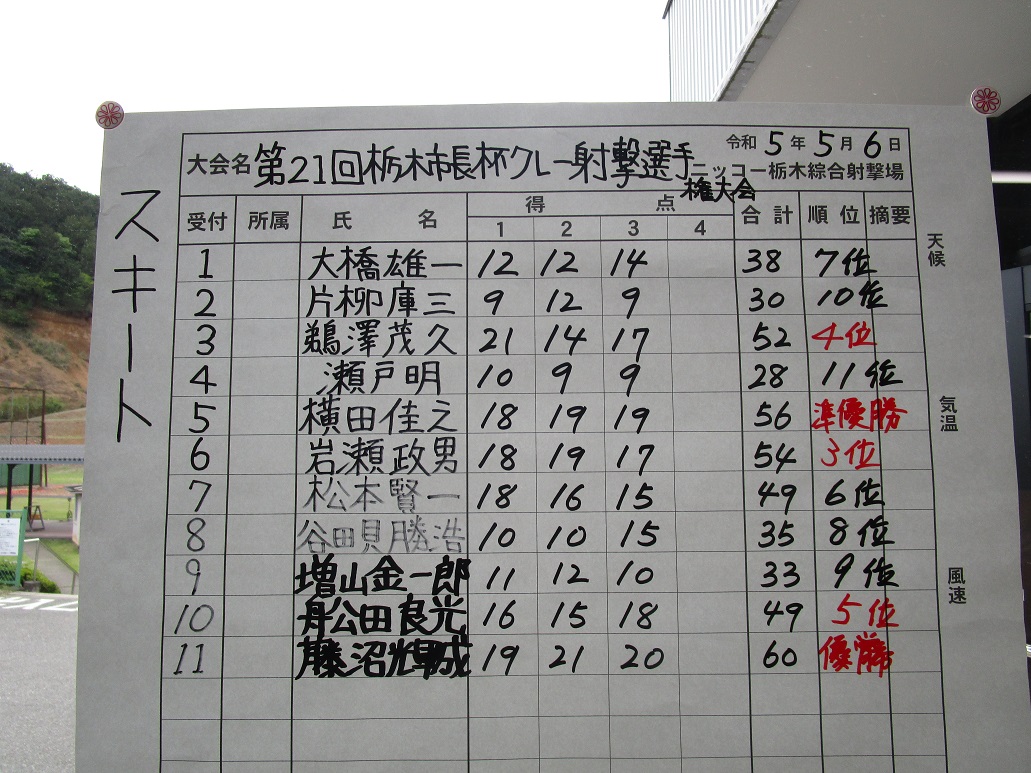 令和 5 年 5 月 6 日
大会名 第21回栃木市長杯クレー射撃選手権大会 ニッコー栃木綜合射撃場
スキート
受付 所属 氏名 得点 1 2 3 4 合計 順位 摘要
1 大橋雄一 12 12 14 38 7位
2 片柳庫三 9 12 9 30 10位
3 鵜澤茂久 21 14 17 52 4位
4 瀬戸明 10 9 9 28 11位
5 横田佳之 18 19 19 56 準優勝
6 岩瀬政男 18 19 17 54 3位
7 松本賢一 18 16 15 49 6位
8 谷田貝勝浩 10 10 15 35 8位
9 増山金一郎 11 12 10 33 9位
10 舟公田良光 16 15 18 49 5位
11 藤沼輝成 19 21 20 60 優勝
天候
気温
風速